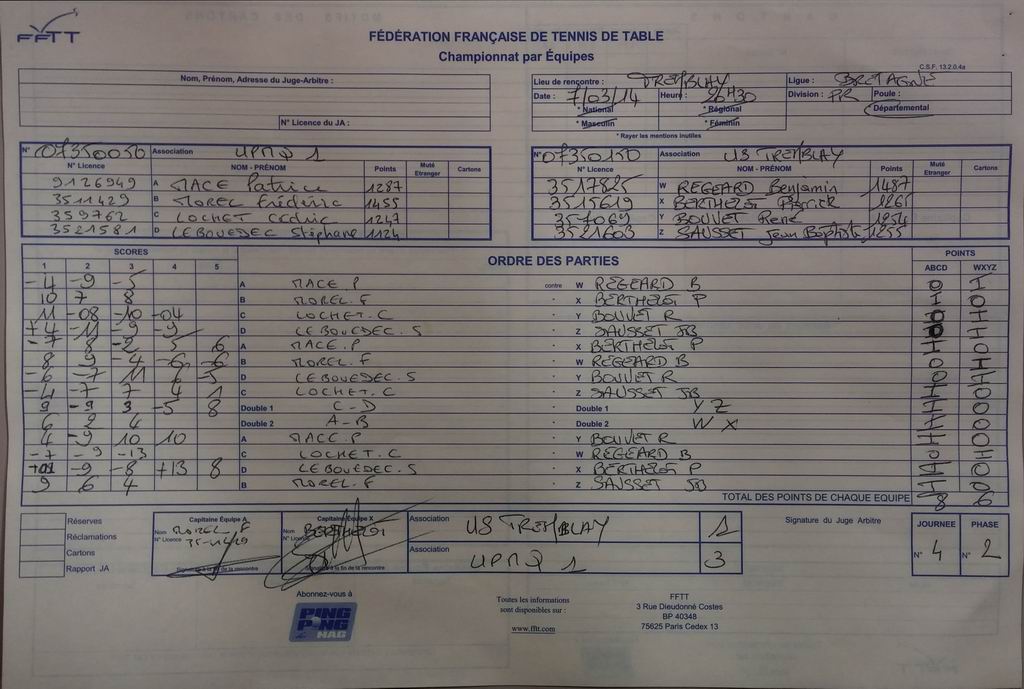 FFTT
FÉDÉRATION FRANÇAISE DE TENNIS DE TABLE
Championnat par Équipes
C.S.F. 13.2.0.4a
Nom, Prénom, Adresse du Juge-Arbitre :
N° Licence du JA :
Lieu de rencontre : TREMBLAY Ligue : BRETAGNE
Date : 7/03/14 Heure : 20H30 Division : PR Poule :
* National * Régional Départemental
* Masculin * Féminin
* Rayer les mentions inutiles
N° 07350050 Association UPMQ 1
N° Licence NOM - PRÉNOM Points Muté Etranger Cartons
9126949 A MACE Patrice 1287
3511429 B MOREL Frédéric 1455
359762 C LOCHET Cédric 1247
3521581 D LEBOUEDEC Stéphane 1124
N° 07350150 Association US TREMBLAY
N° Licence NOM - PRÉNOM Points Muté Etranger Cartons
3517825 W REGEARD Benjamin 1487
3515619 X BERTHELOT Pierrick 1265
Y BOUVET René
3521603 Z SAUSSET Jean Baptiste 1255
SCORES ORDRE DES PARTIES POINTS
1 2 3 4 5 ABCD WXYZ
-4 -9 -5 A MACE.P contre W REGEARD B 0 1
10 7 8 B MOREL.F - X BERTHELOT P 1 0
11 -08 -10 -04 C LOCHET.C - Y BOUVET R 0 1
+4 -11 -9 -9 D LEBOUEDEC.S - Z SAUSSET JB 0 1
-7 8 -2 5 6 A MACE.P - X BERTHELOT P 1 0
8 9 -4 -6 -6 B MOREL.F - W REGEARD B 0 1
-6 -7 11 6 -5 D LEBOUEDEC.S - Y BOUVET R 0 1
-4 -7 7 4 1 C LOCHET.C - Z SAUSSET JB 1 0
9 -9 3 -5 8 Double 1 C-D Double 1 YZ 1 0
6 2 4 Double 2 A-B Double 2 WX 1 0
4 -9 10 10 A MACE.P - Y BOUVET R 1 0
-7 -9 -13 C LOCHET.C - W REGEARD B 0 1
-9 -8 +13 8 D LEBOUEDEC.S - X BERTHELOT P 1 0
9 6 4 B MOREL.F - Z SAUSSET JB 1 0
TOTAL DES POINTS DE CHAQUE EQUIPE 8 6
Réserves
Réclamations
Cartons
Rapport JA
Capitaine Équipe A
Nom MOREL.F
N° Licence 35-11429
Signature à la fin de la rencontre
Capitaine Équipe X
Nom BERTHELOT
N° Licence
Signature à la fin de la rencontre
Association US TREMBLAY 1
Association UPMQ 1 3
Signature du Juge Arbitre
JOURNEE PHASE
N° 4 N° 2
Abonnez-vous à
PING PONG MAG
Toutes les informations
sont disponibles sur :
www.fftt.com
FFTT
3 Rue Dieudonné Costes
BP 40348
75625 Paris Cedex 13